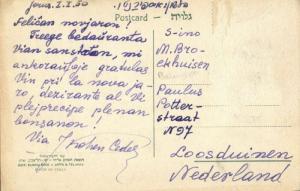 Jerus. 1.I.50
Feliĉan novjaron!
Treege bedaŭranta
Vian sanstaton, mi
ankoraŭfoje gratulas
Vin pri la nova ja-
ro, dezirante al Vi
plejprecipe plenan
bonsanon!
Via
גלויה
Postcard
S-ino
M. Bro-
ekhuisen
Paulus
Potter-
straat
N97
Loosduinen
Nederland